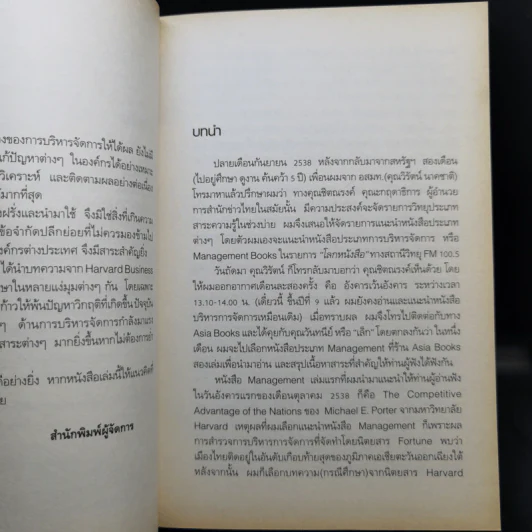 องของการบริหารจัดการให้ได้ผล ยังไม่มี
แก้ปัญหาต่างๆ ในองค์กรได้อย่างเหมาะ
วิเคราะห์ และติดตามผลอย่างต่อเนื่อง
มากที่สุด
ฝรั่งและนำมาใช้ จึงมิใช่สิ่งที่เกินความ
ข้อจำกัดปลีกย่อยที่ไม่ควรมองข้ามไป
งค์กรต่างประเทศ จึงมีสาระสำคัญยิ่ง
ได้นำบทความจาก Harvard Business
ษาในหลายแง่มุมต่างๆ กัน โดยเฉพาะ
ก้าวให้พ้นปัญหาวิกฤติที่เกิดขึ้นปัจจุบัน
ๆ ด้านการบริหารจัดการกำลังมาแรง
สาระต่างๆ มากยิ่งขึ้นหากไม่ต้องการ
ย่างยิ่ง หากหนังสือเล่มนี้ให้แนวคิดที่
ย
สำนักพิมพ์ผู้จัดการ
บทนำ
ปลายเดือนกันยายน 2538 หลังจากกลับมาจากสหรัฐฯ สองเดือน
(ไปอยู่ศึกษา ดูงาน ค้นคว้า 5 ปี) เพื่อนผมจาก อสมท. (คุณวิรัตน์ นาคชาติ)
โทรมาหาแล้วปรึกษาผมว่า ทางคุณชิตณรงค์ คุณะกฤดาธิการ ผู้อำนวย
การสำนักข่าวไทยในสมัยนั้น มีความประสงค์จะจัดรายการวิทยุประเภท
สาระความรู้ในช่วงบ่าย ผมจึงเสนอให้จัดรายการแนะนำหนังสือประเภท
ต่างๆ โดยตัวผมเองจะแนะนำหนังสือประเภทการบริหารจัดการ หรือ
Management Books ในรายการ "โลกหนังสือ" ทางสถานีวิทยุ FM 100.5
วันถัดมา คุณวิรัตน์ ก็โทรกลับมาบอกว่า คุณชิตณรงค์เห็นด้วย โดย
ให้ผมออกอากาศเดือนละสองครั้ง คือ อังคารเว้นอังคาร ระหว่างเวลา
13.10-14.00 น. (เดี๋ยวนี้ ขึ้นปีที่ 9 แล้ว ผมยังคงอ่านและแนะนำหนังสือ
บริหารการจัดการเหมือนเดิม) วันเดียวกันนั้น ผมจึงโทรไปติดต่อกับทาง
Asia Books และได้คุยกับคุณวันทนีย์ หรือ "เล็ก" โดยตกลงกันว่า ในหนึ่ง
เดือน ผมจะไปเลือกหนังสือประเภท Management ที่ร้าน Asia Books
สองเล่มเพื่อนำมาอ่าน และสรุปเนื้อหาสาระที่สำคัญให้ท่านผู้ฟังได้ฟังกัน
หนังสือ Management เล่มแรกที่ผมนำมาแนะนำให้ท่านผู้อ่านฟัง
ในวันอังคารแรกของเดือนตุลาคม 2538 ก็คือ The Competitive
Advantage of the Nations ของ Michael E. Porter จากมหาวิทยาลัย
Harvard เหตุผลที่ผมเลือกแนะนำหนังสือ Management ก็เพราะผล
การสำรวจการบริหารการจัดการที่จัดทำโดยนิตยสาร Fortune พบว่า
เมืองไทยติดอยู่ในอันดับเกือบท้ายสุดของภูมิภาคเอเชียตะวันออกเฉียงใต้
หลังจากนั้น ผมก็เลือกบทความ(กรณีศึกษา)จากนิตยสาร Harvard